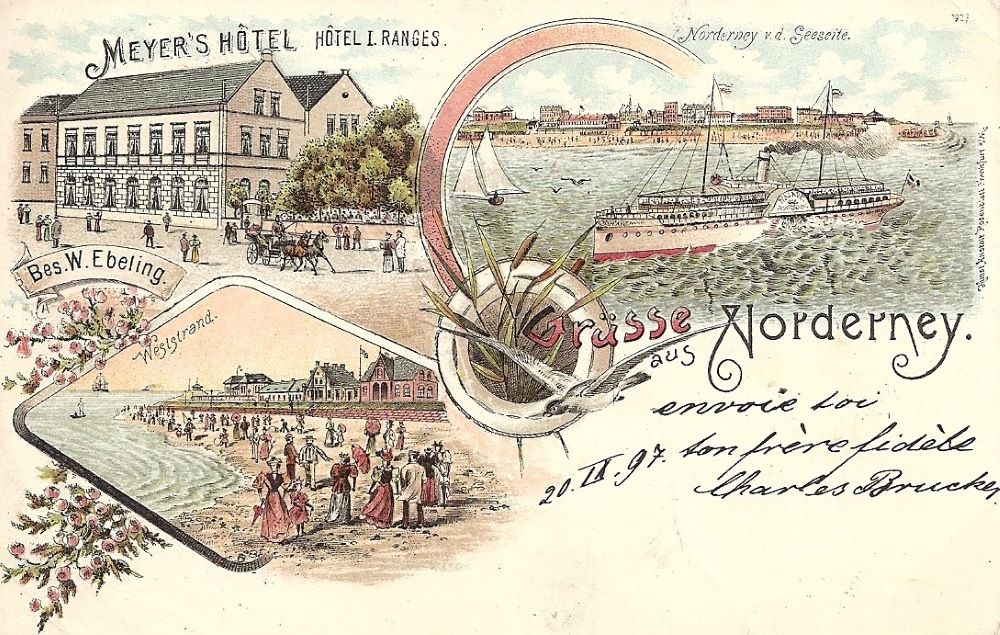 MEYER'S HÔTEL HÔTEL I. RANGES.
Bes. W. Ebeling.
Norderney v. d. Seeseite.
Weststrand.
Grüsse
aus
Norderney.
envoie toi
20. IX 97. ton frère fidèle
Charles Brucker
Rosenblatt, Frankfurt a/M.